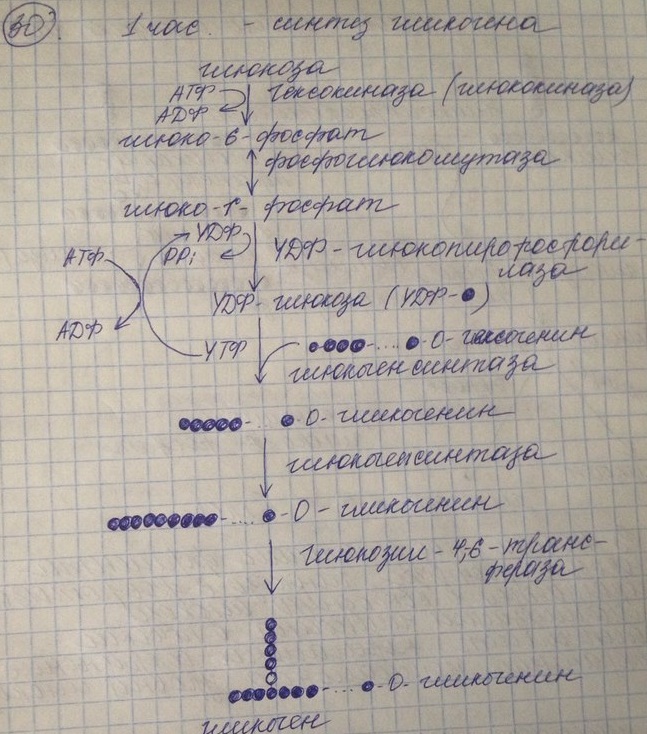 30. 1 час. - синтез гликогена
глюкоза
АТФ
АДФ
гексокиназа (глюкокиназа)
глюко-6-фосфат
фосфоглюкомутаза
глюко-1-фосфат
АТФ
УДФ
PPi
УДФ-глюкопирофосфори-
лаза
УДФ-глюкоза (УДФ-●)
АДФ
УТФ
.... O-гликогенин
гликогенсинтаза
... O-гликогенин
гликогенсинтаза
.... -O-гликогенин
глюкозил-4,6-транс-
фераза
.... -O-гликогенин
гликоген